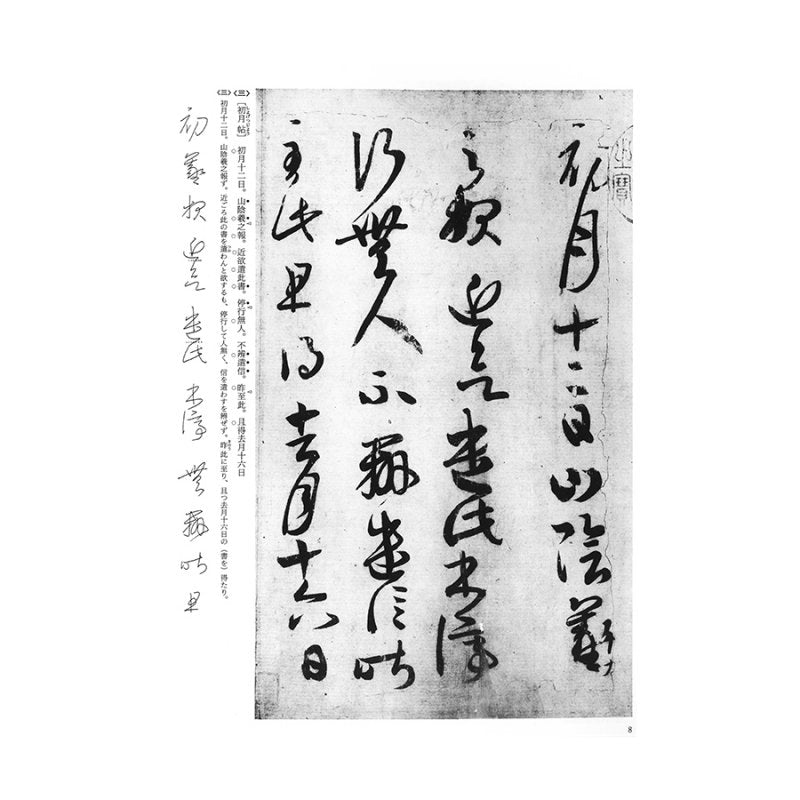 初月十二日山陰羲
之報近欲遣此書停
行無人不辨遣信昨
至此且得去月十六日
〈三〉［初月帖］ 初月十二日。山陰羲之報。近欲遣此書。停行無人。不辨遣信。昨至此。且得去月十六日
〈三〉初月十二日。山陰羲之報ず。近ごろ此の書を遣わんと欲するも、停行して人無く、信を遣わすを辨ぜず。昨此に至り、且つ去月十六日の（書を）得たり。
初羲報近欲遣此書停無辨昨且
8